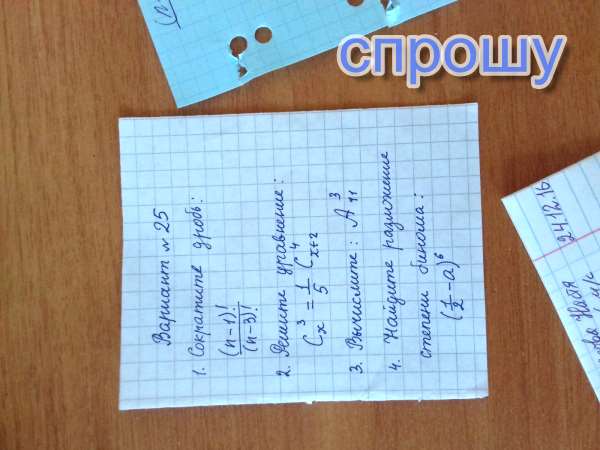 спрошу
Вариант № 25
1. Сократите дробь:
(n-1)!
(n-3)!
2. Решите уравнение:
C_x^3 = 1/5 C_{x+2}^4
3. Вычислите: A_{11}^3
4. Найдите разложение
степени бинома:
(1/2 - a)^6
24.12.16
Надя